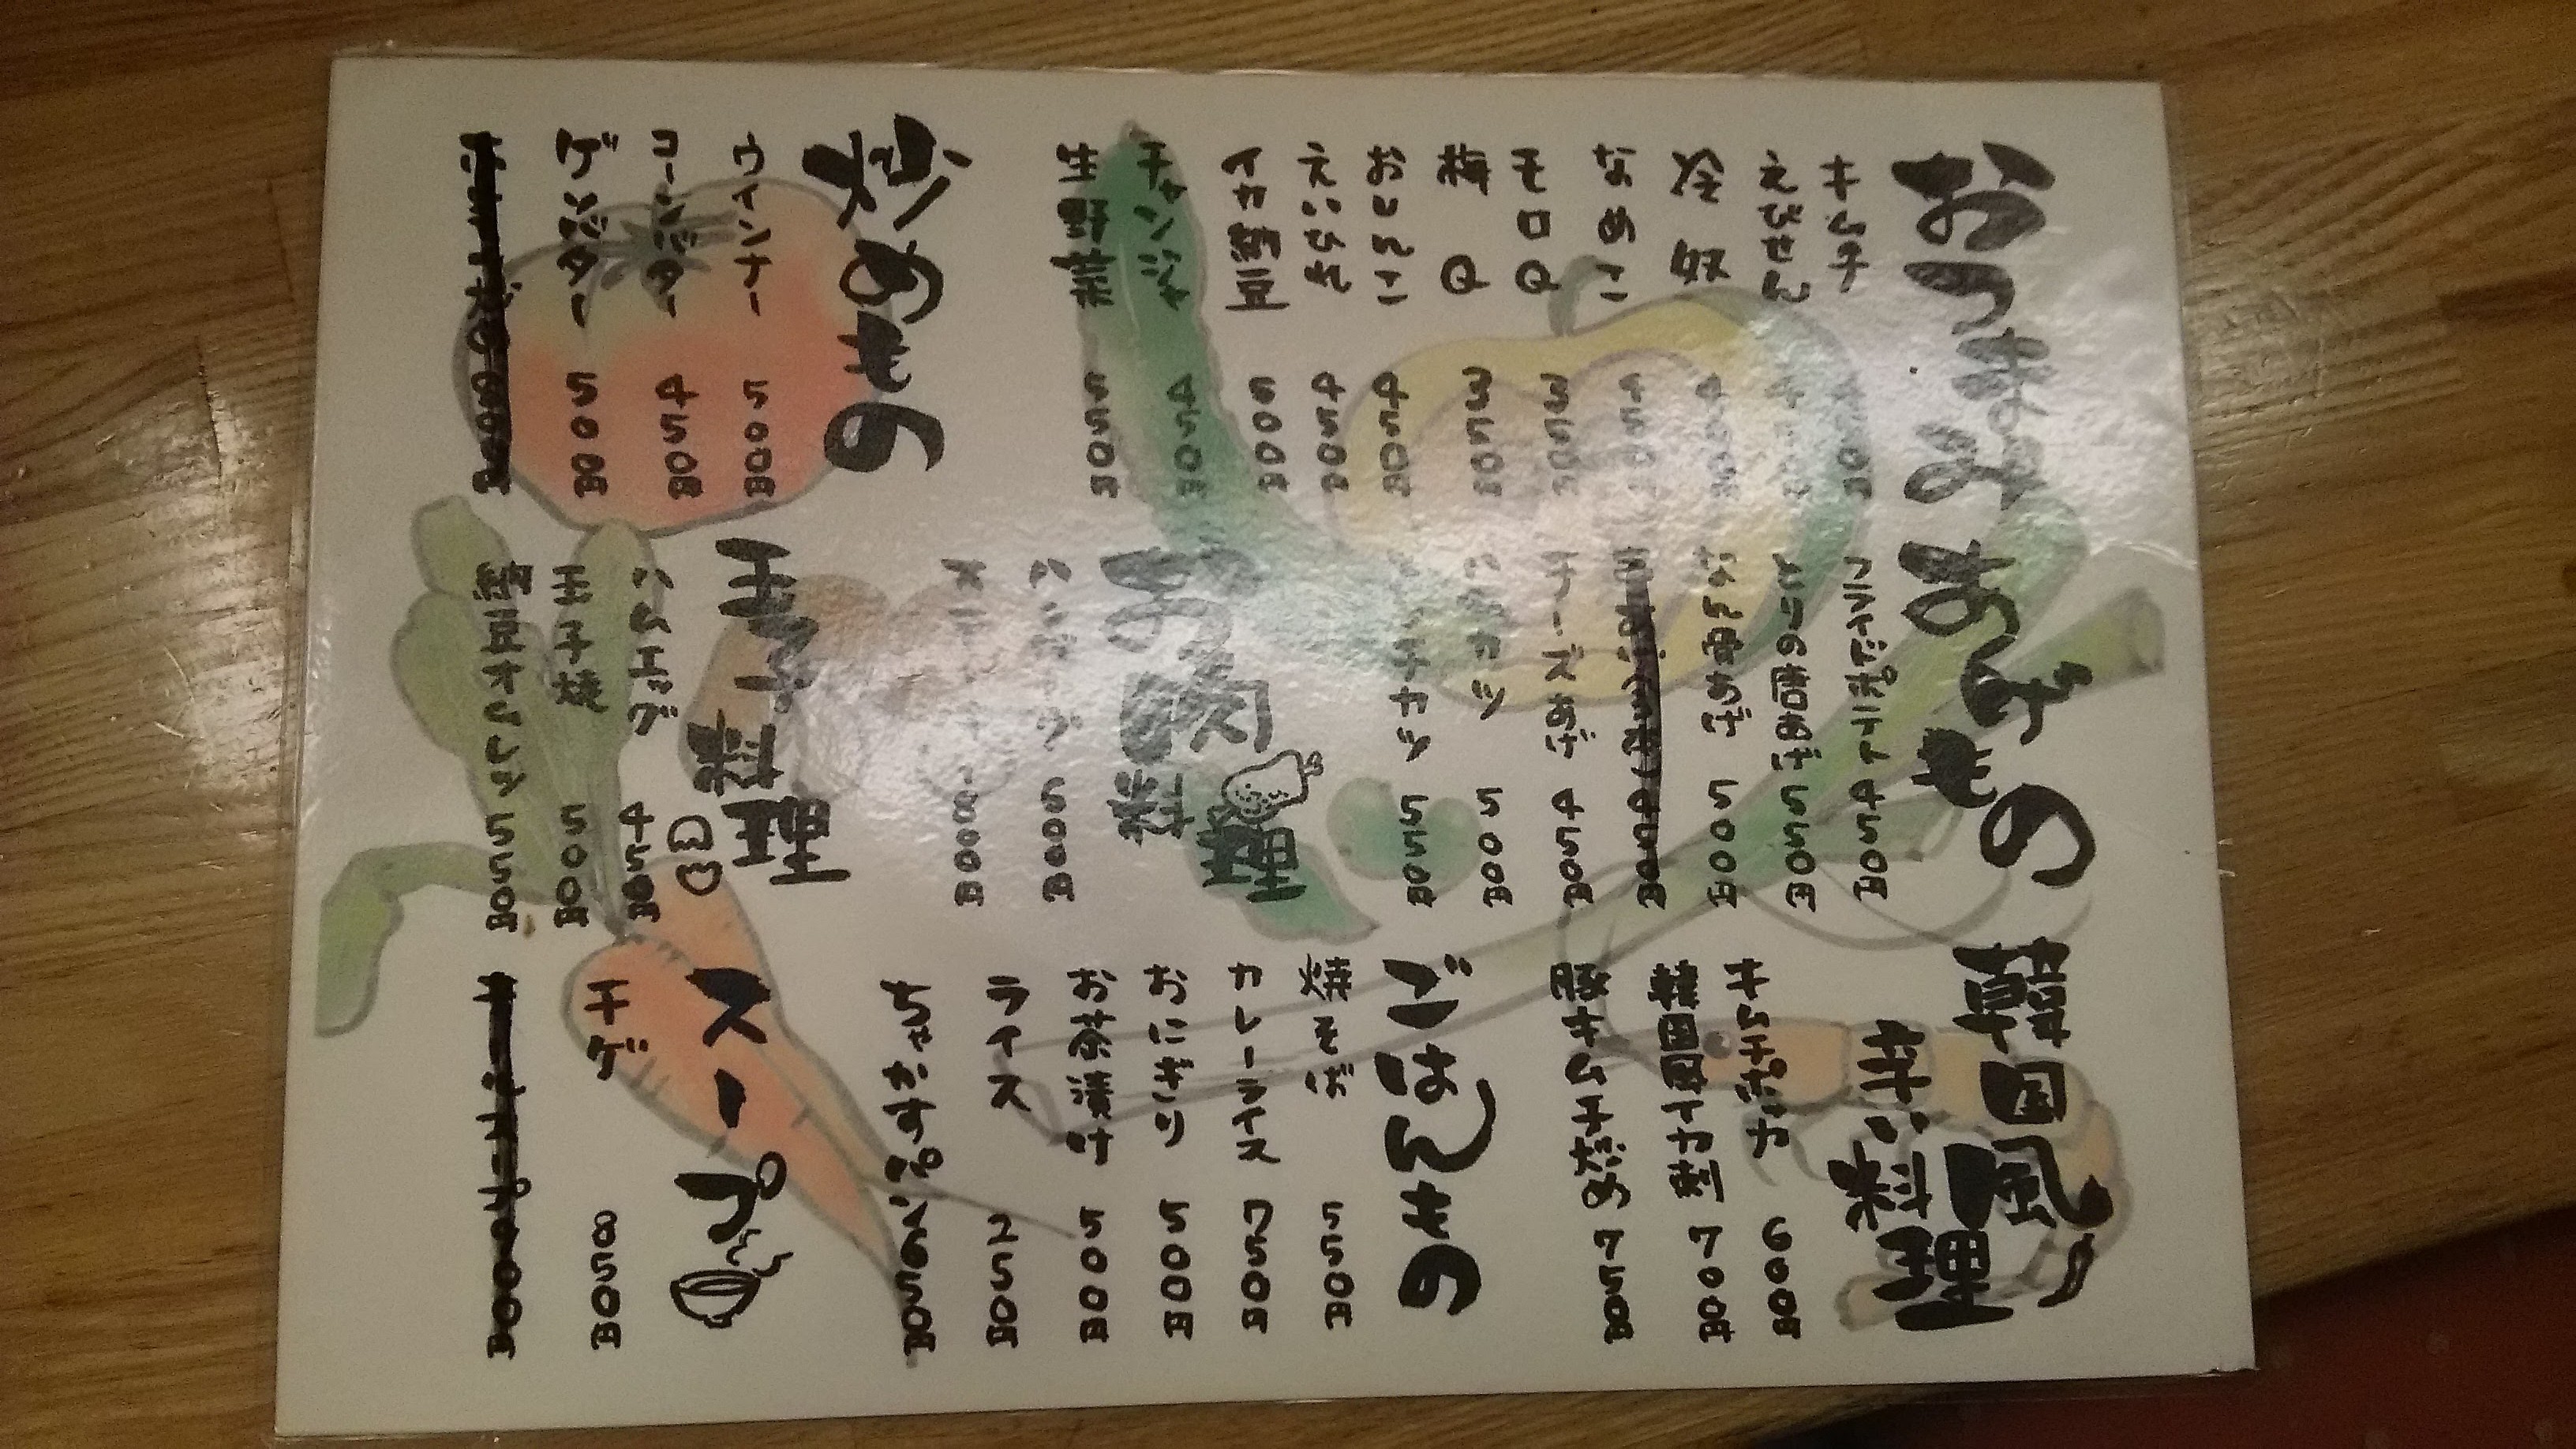 おつまみ
キムチ
えびせん
冷奴
なめこ 450円
モロQ 350円
梅Q 350円
おしんこ 450円
えいひれ 450円
イカ納豆 500円
チャンジャ 450円
生野菜 550円
炒めもの
ウインナー 500円
コーンバター 450円
ゲソバター 500円
あげもの
フライドポテト 450円
とりの唐あげ 550円
500円
チーズあげ 450円
ハムカツ 500円
メンチカツ 550円
お肉料理
ハンバーグ 600円
800円
玉子料理
ハムエッグ 450円
玉子焼 500円
納豆オムレツ 550円
韓国風
辛い料理
キムチポカ 600円
韓国風イカ刺 700円
豚キムチ炒め 750円
ごはんもの
焼そば 550円
カレーライス 750円
おにぎり 500円
お茶漬け 500円
ライス 250円
650円
スープ
チゲ 850円